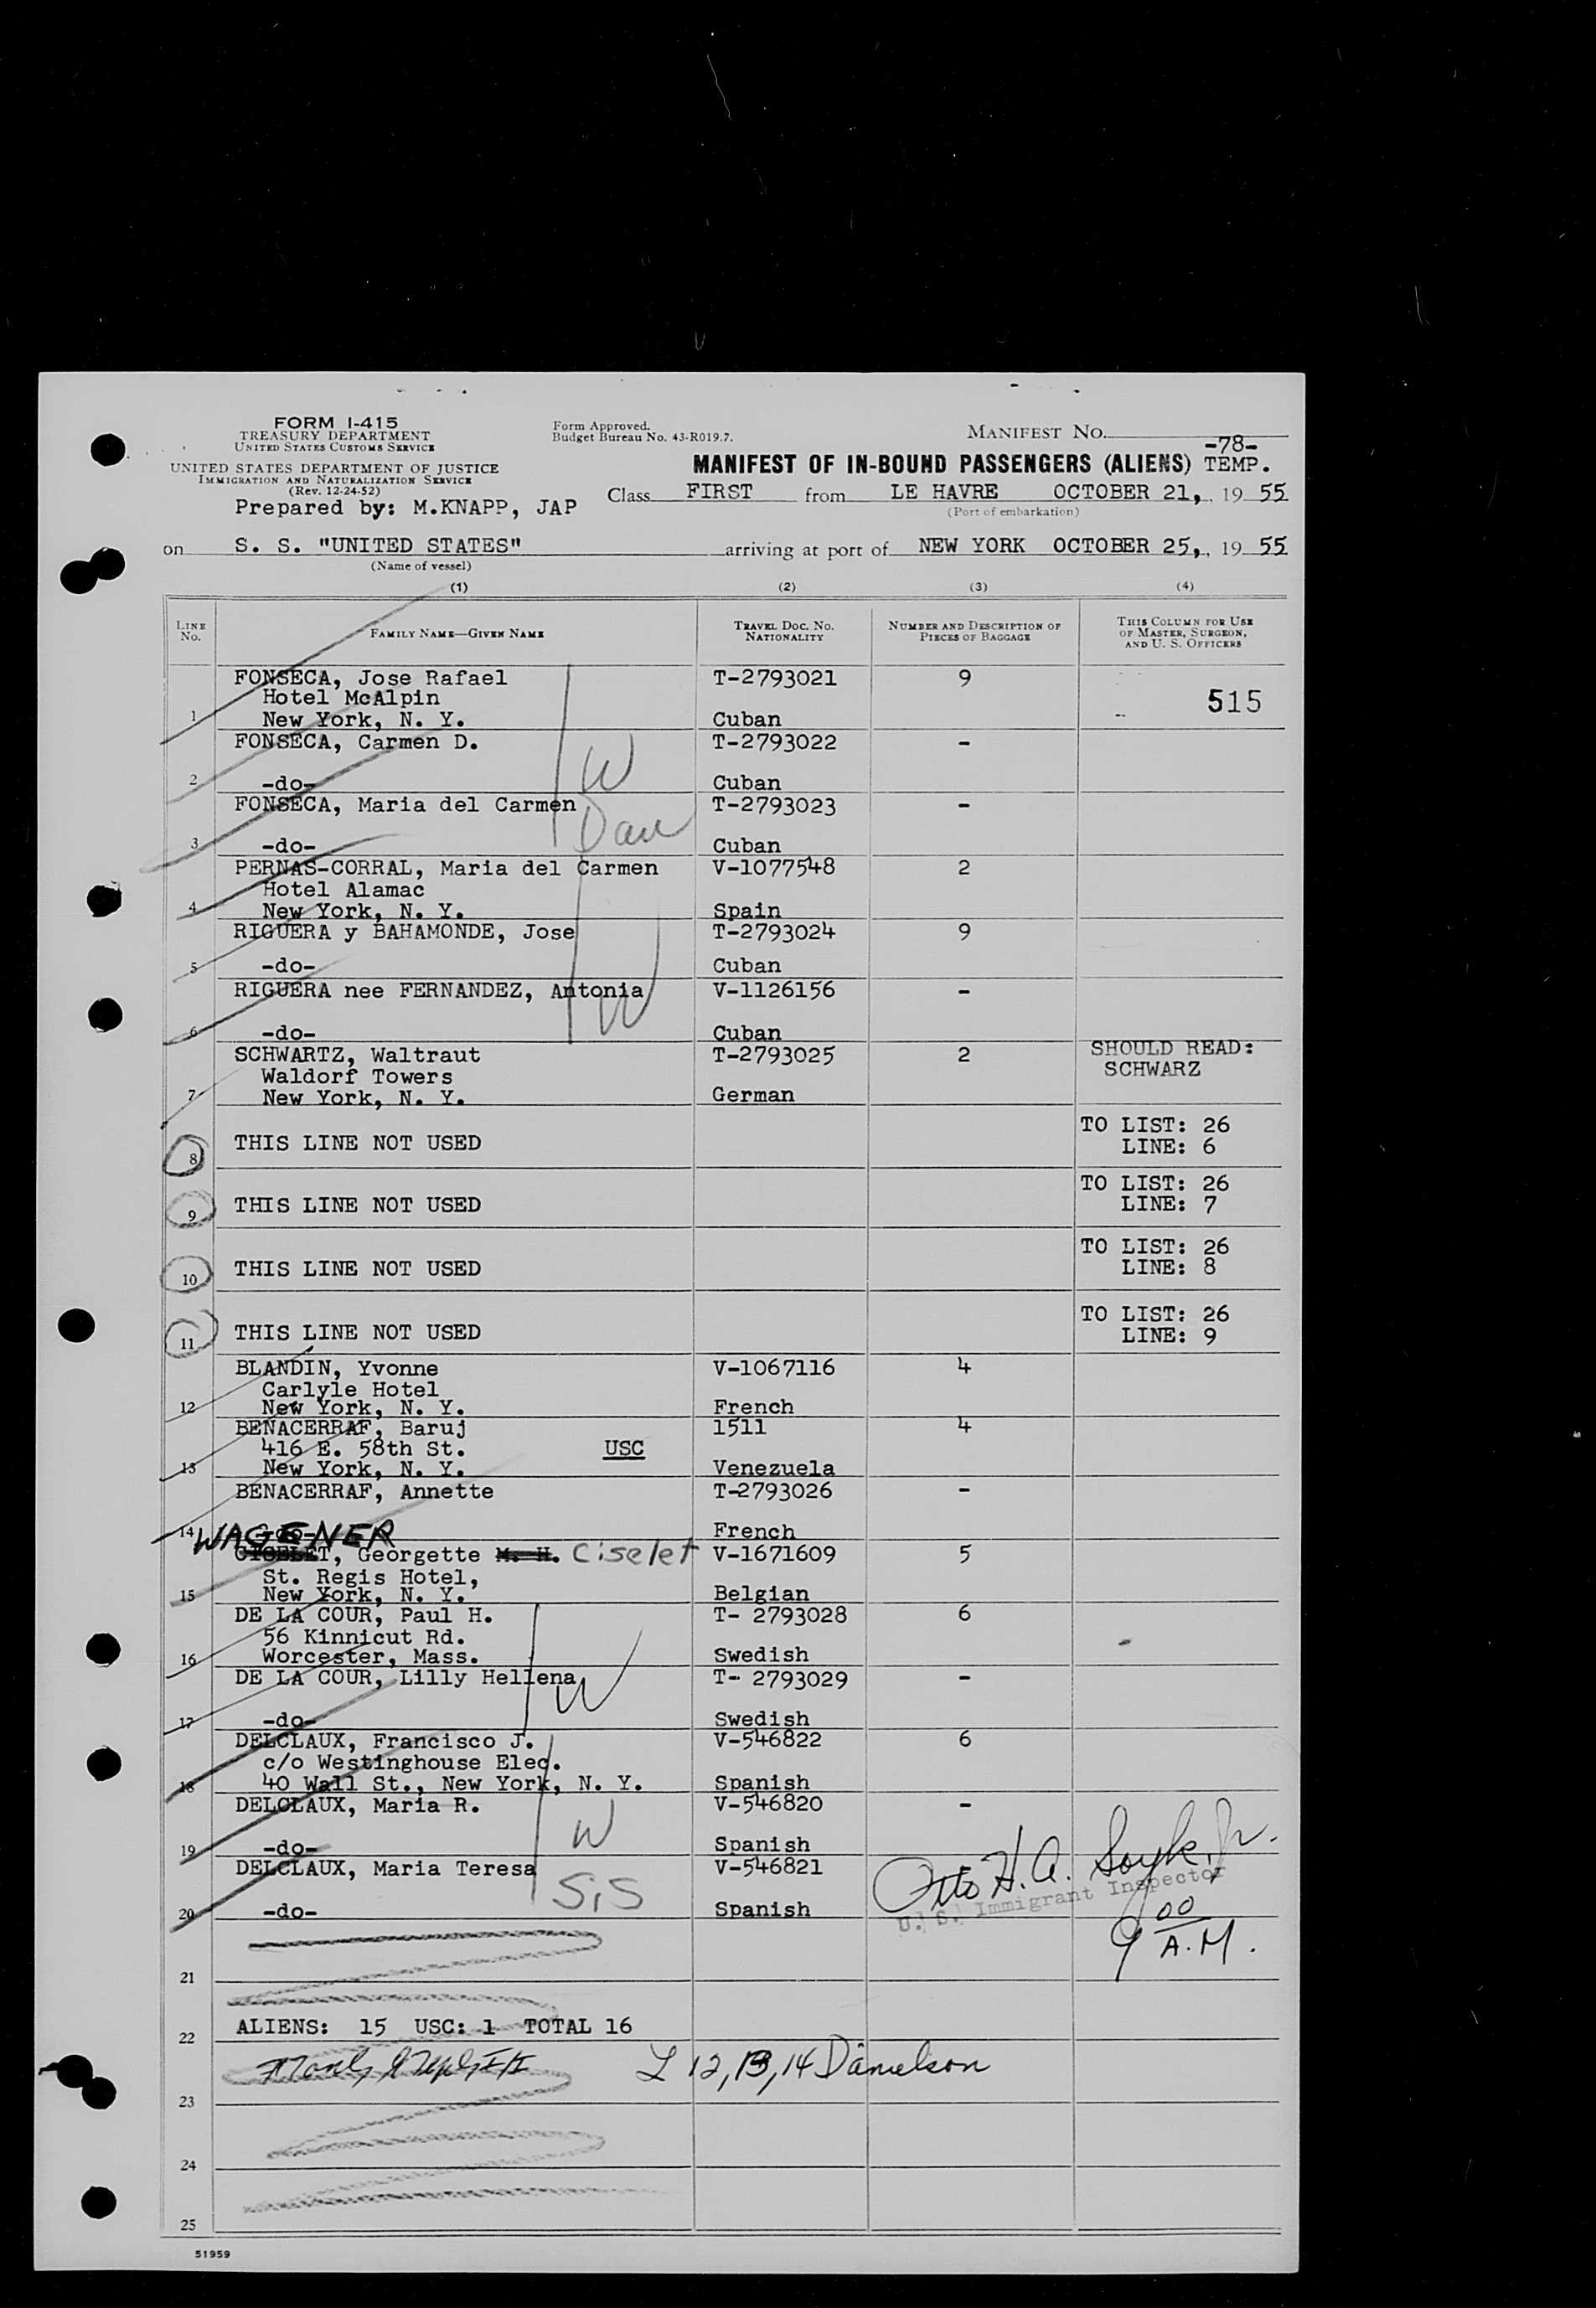 FORM I-415
TREASURY DEPARTMENT
UNITED STATES CUSTOMS SERVICE
Form Approved.
Budget Bureau No. 43-R019.7.
MANIFEST NO. -78-
UNITED STATES DEPARTMENT OF JUSTICE
IMMIGRATION AND NATURALIZATION SERVICE
(Rev. 12-24-52)
MANIFEST OF IN-BOUND PASSENGERS (ALIENS) TEMP.
Prepared by: M.KNAPP, JAP
Class FIRST from LE HAVRE OCTOBER 21, 19 55
(Port of embarkation)
on S. S. "UNITED STATES" arriving at port of NEW YORK OCTOBER 25, 19 55
(Name of vessel)
(1) (2) (3) (4)
LINE NO. FAMILY NAME—GIVEN NAME TRAVEL DOC. NO. NATIONALITY NUMBER AND DESCRIPTION OF PIECES OF BAGGAGE THIS COLUMN FOR USE OF MASTER, SURGEON, AND U. S. OFFICERS
FONSECA, Jose Rafael T-2793021 9
Hotel McAlpin 515
1 New York, N. Y. Cuban
FONSECA, Carmen D. T-2793022 -
W
2 -do- Cuban
FONSECA, Maria del Carmen T-2793023 -
Dau
3 -do- Cuban
PERNAS-CORRAL, Maria del Carmen V-1077548 2
Hotel Alamac
4 New York, N. Y. Spain
RIGUERA y BAHAMONDE, Jose T-2793024 9
5 -do- Cuban
RIGUERA nee FERNANDEZ, Antonia V-1126156 -
W
6 -do- Cuban
SCHWARTZ, Waltraut T-2793025 2 SHOULD READ:
Waldorf Towers SCHWARZ
7 New York, N. Y. German
TO LIST: 26
8 THIS LINE NOT USED LINE: 6
TO LIST: 26
9 THIS LINE NOT USED LINE: 7
TO LIST: 26
10 THIS LINE NOT USED LINE: 8
TO LIST: 26
11 THIS LINE NOT USED LINE: 9
BLANDIN, Yvonne V-1067116 4
Carlyle Hotel
12 New York, N. Y. French
BENACERRAF, Baruj 1511 4
416 E. 58th St. USC
13 New York, N. Y. Venezuela
BENACERRAF, Annette T-2793026 -
14 -do- French
WAGENER
CISELET, Georgette M. H. Ciselet V-1671609 5
St. Regis Hotel,
15 New York, N. Y. Belgian
DE LA COUR, Paul H. T- 2793028 6
56 Kinnicut Rd.
16 Worcester, Mass. Swedish
DE LA COUR, Lilly Hellena T- 2793029 -
W
17 -do- Swedish
DELCLAUX, Francisco J. V-546822 6
c/o Westinghouse Elec.
18 40 Wall St., New York, N. Y. Spanish
DELCLAUX, Maria R. V-546820 -
W
19 -do- Spanish
DELCLAUX, Maria Teresa V-546821
Otto H. A. Soyk, Jr.
SiS
U. S. Immigrant Inspector
20 -do- Spanish
9 00 A.M.
21
22 ALIENS: 15 USC: 1 TOTAL 16
L 12, 13, 14 Danielson
23
24
25
51959